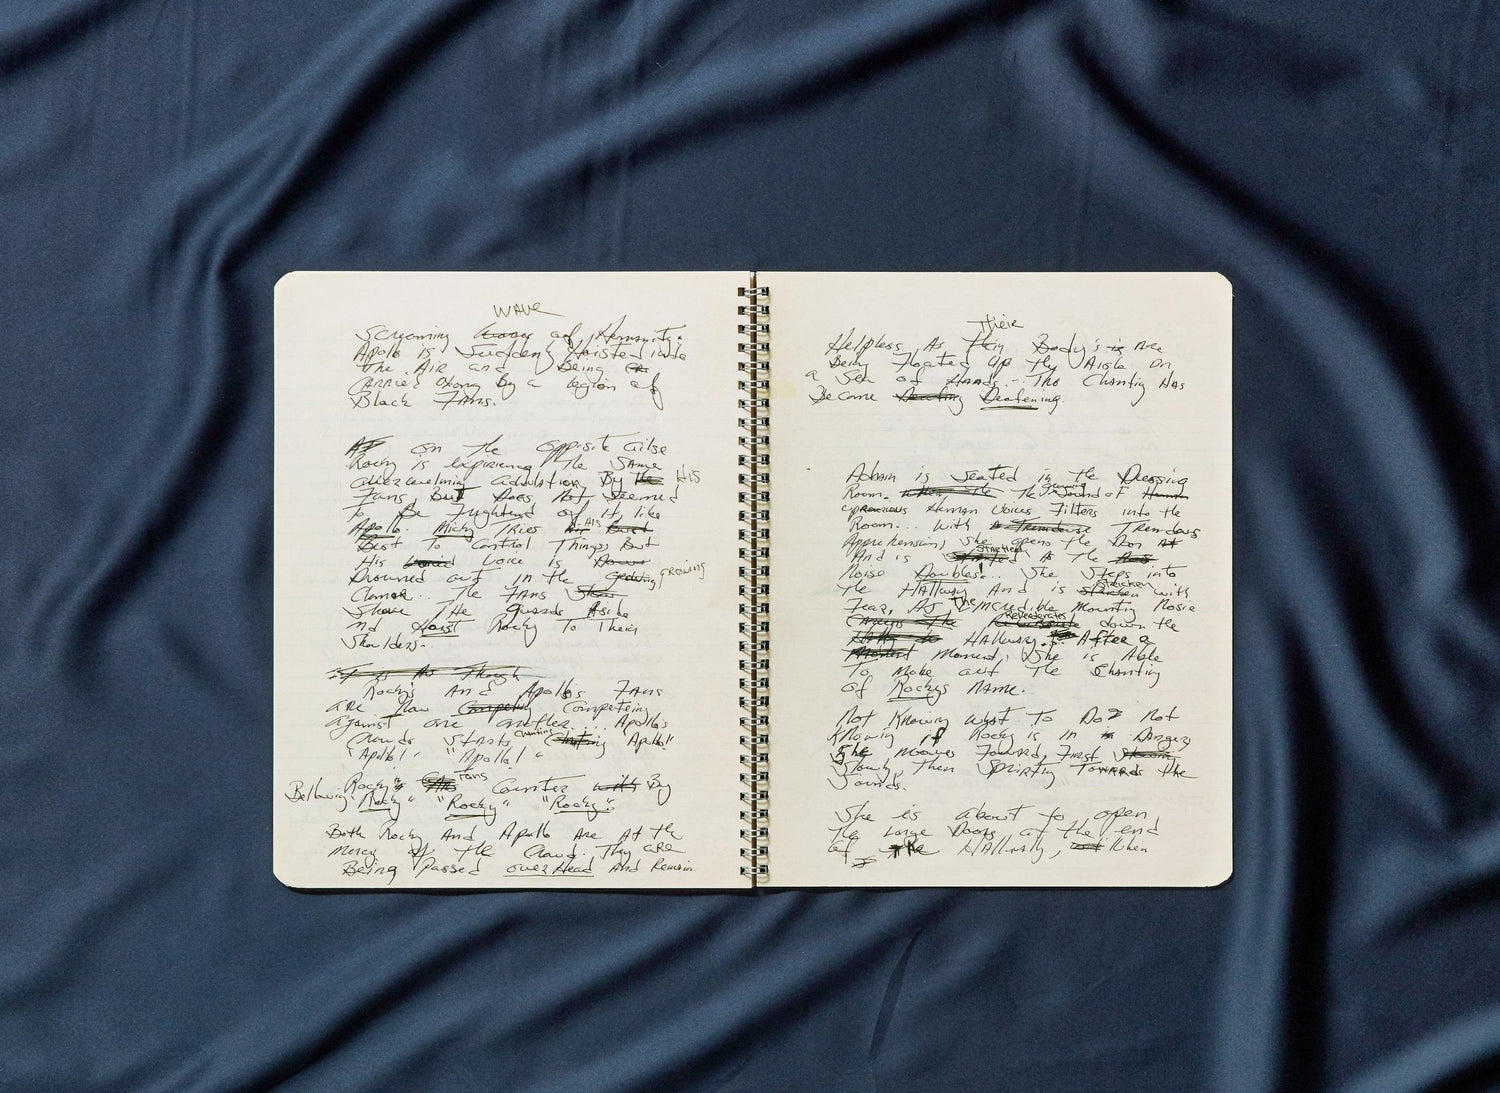 WAVE
Screaming of Humanity.
Apollo is Suddenly Hoisted into
The Air and Being
CARRIED Along By a legion of
Black Fans.
on the opposite
Rocky is the SAME
adulation By the HIS
Fans, But Does Not Seemed
To Be of it, like
Apollo. Micky Tries HIS Best
Best To Control Things, But
His voice is
Drowned out in the Growing GROWING
Clamor. The FANS
Shove The guards Aside
and Hoist Rocky To Their
Shoulders.
As Though
Rocky's And Apollo's Fans
are Now Competing
against one another... Apollo's
Crowds Starts Chanting "Apollo"
"Apollo!" "Apollo!"
Rocky's Fans Counter with By
Bellowing "Rocky" "Rocky" "Rocky".
Both Rocky And Apollo Are At the
mercy of the Crowd. They are
Being passed overHead And Remain
Their
Helpless As Their Body's is Are
Being Floated Up the Aisle On
a Sea of Hands... The Chanting Has
Become Deafening.
Adrain is seated in the Dressing
Room. When the The Sound of Human
Human Voices Filters into the
Room... With a Tremdous
Apprehension, she opens the Door
And is As The
Noise Doubles!... She Steps into
the Hallway And is stricken with
Fear, As The Mounting Nosie
the down the
HAllway... After a
Moment Moment, She is Able
To Make out The Chanting
of Rockys NAME.
Not Knowing What To Do? Not
Knowing if Rocky is in Danger,
She Moves Foward, First
Slowly, then TOWARDS the
Sounds.
She is about to open
the Large Doors at the end
of the Hallway, when